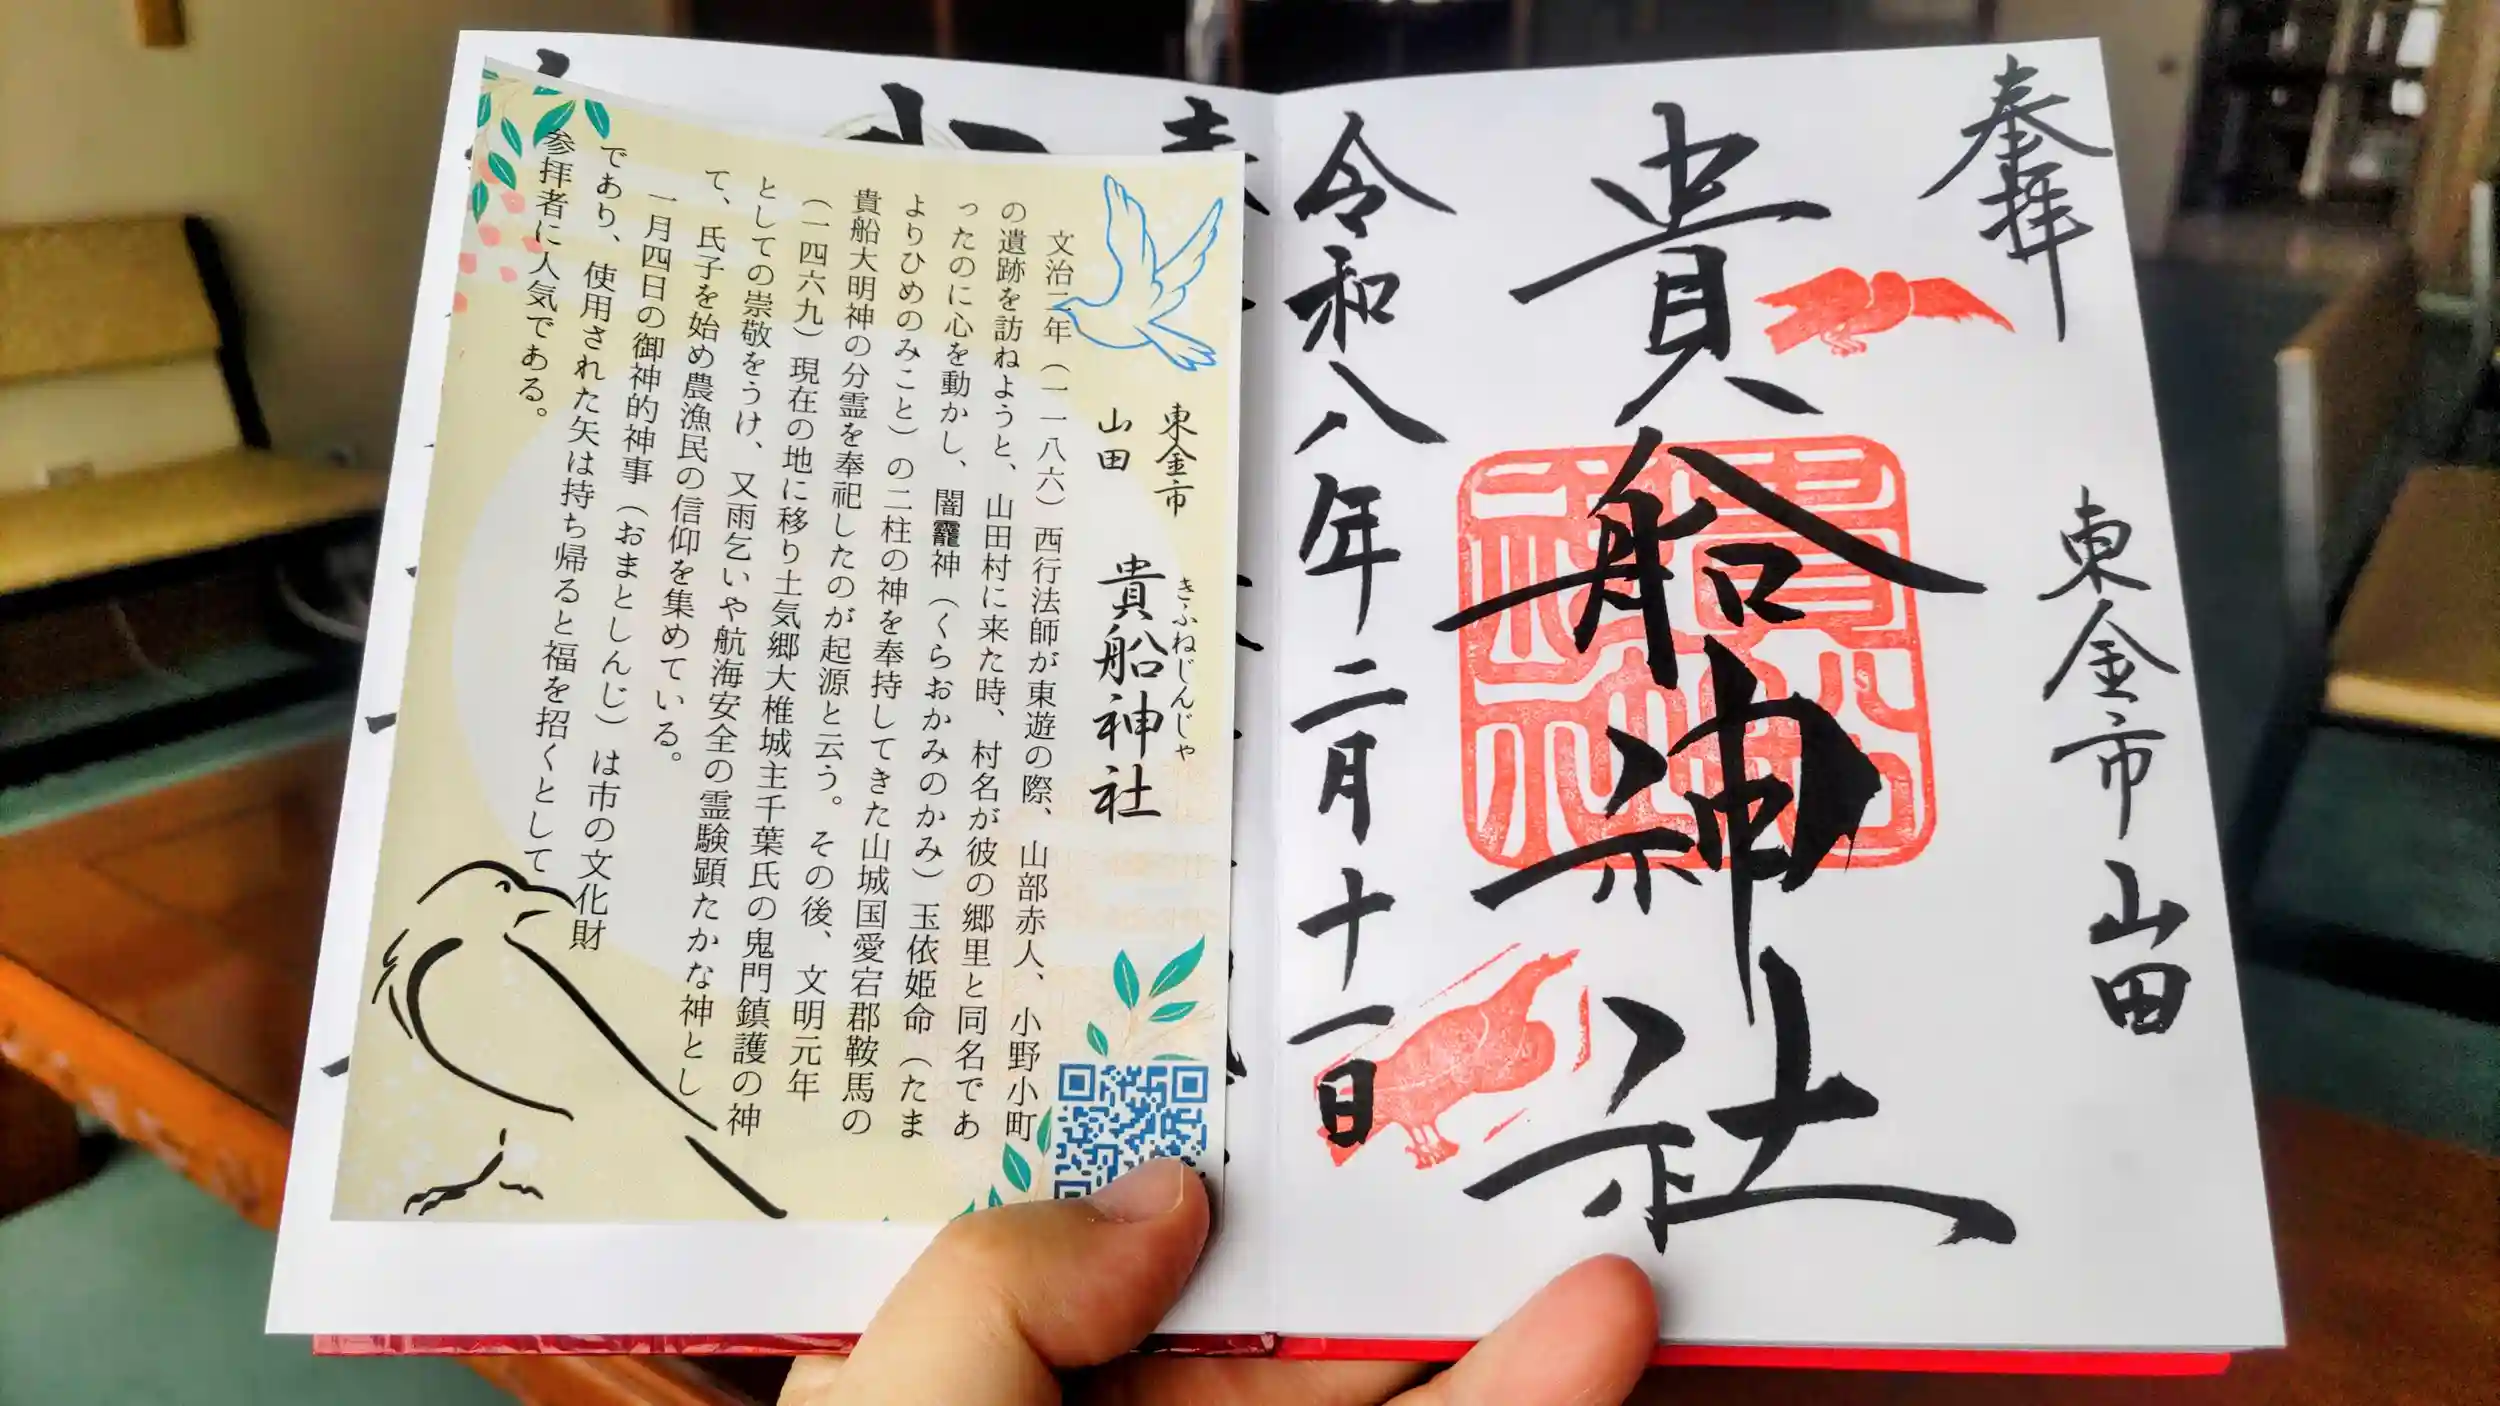 奉拝
東金市山田
貴船神社
令和八年二月十一日
東金市
山田
貴船神社
きふねじんじゃ
文治二年(一一八六)西行法師が東遊の際、山部赤人、小野小町
の遺跡を訪ねようと、山田村に来た時、村名が彼の郷里と同名であ
ったのに心を動かし、闇龗神(くらおかみのかみ)玉依姫命(たま
よりひめのみこと)の二柱の神を奉持してきた山城国愛宕郡鞍馬の
貴船大明神の分霊を奉祀したのが起源と云う。その後、文明元年
(一四六九)現在の地に移り土気郷大椎城主千葉氏の鬼門鎮護の神
としての崇敬をうけ、又雨乞いや航海安全の霊験顕たかな神とし
て、氏子を始め農漁民の信仰を集めている。
一月四日の御神的神事(おまとしんじ)は市の文化財
であり、使用された矢は持ち帰ると福を招くとして
参拝者に人気である。